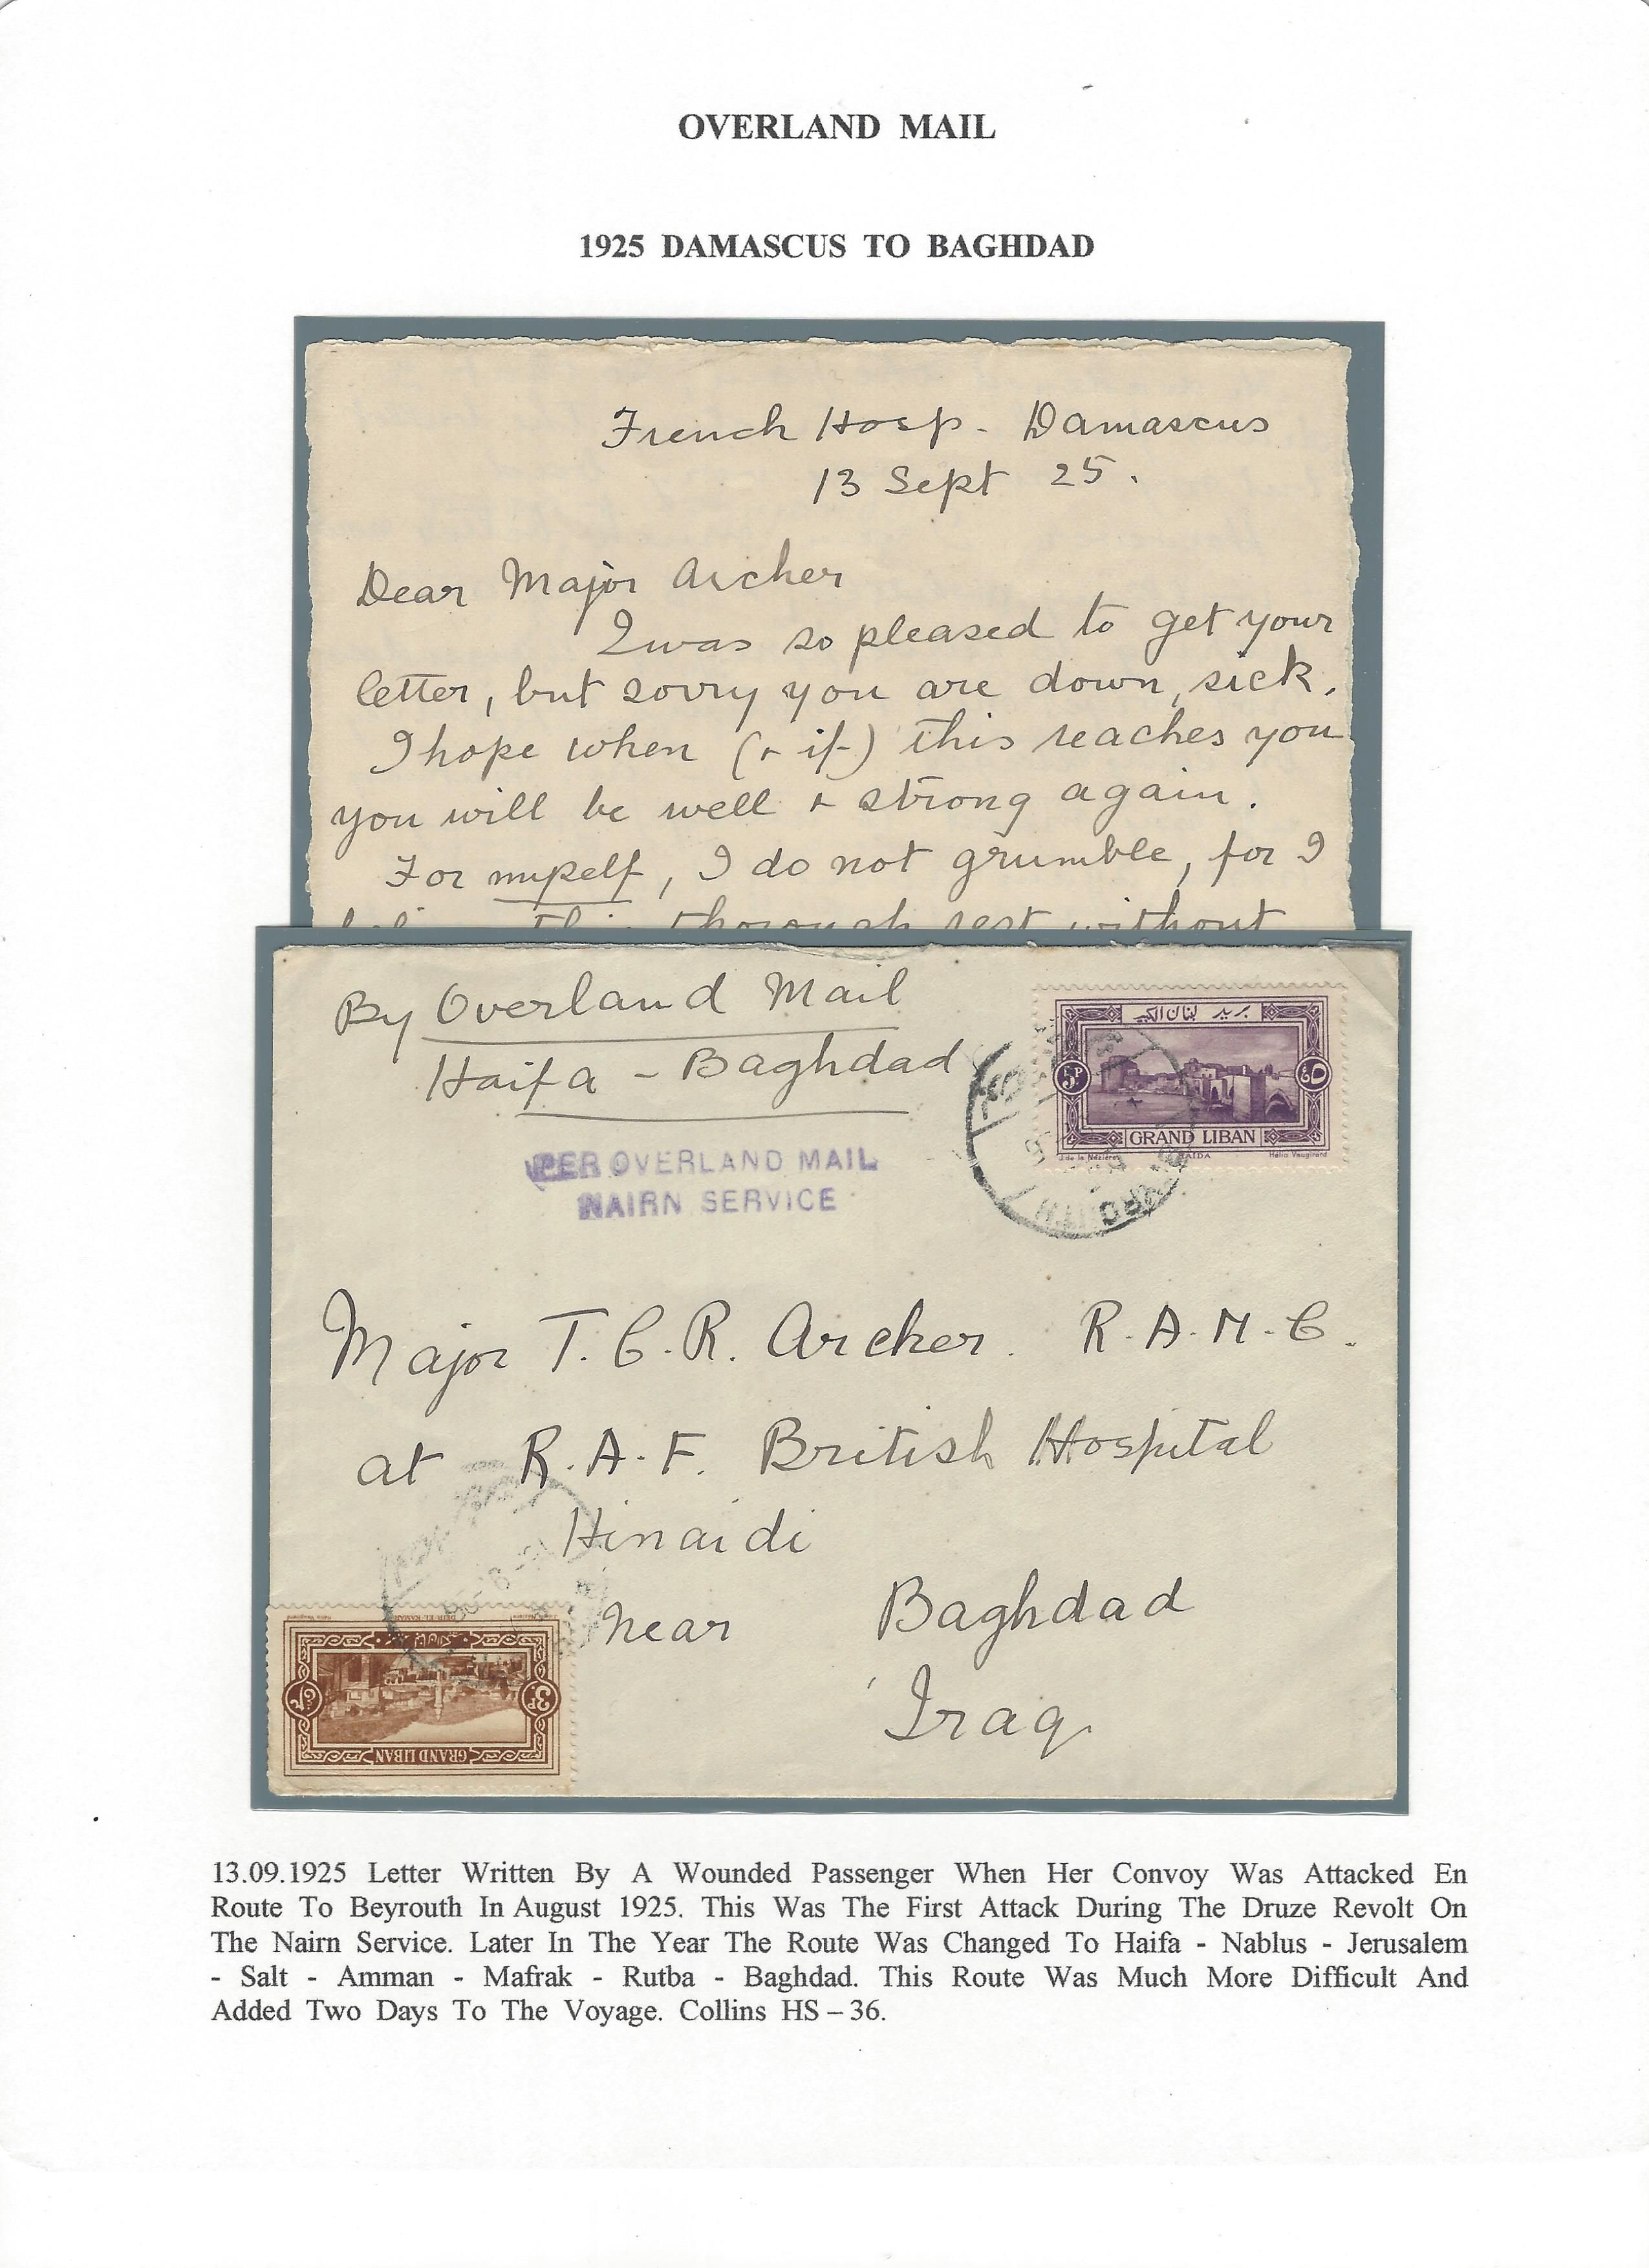 OVERLAND MAIL
1925 DAMASCUS TO BAGHDAD
French Hosp. Damascus
13 Sept 25.
Dear Major Archer
I was so pleased to get your
letter, but sorry you are down, sick.
I hope when (& if) this reaches you
you will be well & strong again.
For myself, I do not grumble, for I
thorough rest without
By Overland Mail
Haifa - Baghdad
بريد لبنان الكبير
5P
٥غ
GRAND LIBAN
J. de la Nézière
SAIDA
Hélio Vaugirard
PER OVERLAND MAIL
NAIRN SERVICE
BEYROUTH
Major T. C. R. Archer. R.A.M.C.
at R.A.F. British Hospital
Hinaidi
near Baghdad
Iraq.
DEIR EL KAMAR
3P
GRAND LIBAN
13.09.1925 Letter Written By A Wounded Passenger When Her Convoy Was Attacked En
Route To Beyrouth In August 1925. This Was The First Attack During The Druze Revolt On
The Nairn Service. Later In The Year The Route Was Changed To Haifa - Nablus - Jerusalem
- Salt - Amman - Mafrak - Rutba - Baghdad. This Route Was Much More Difficult And
Added Two Days To The Voyage. Collins HS – 36.